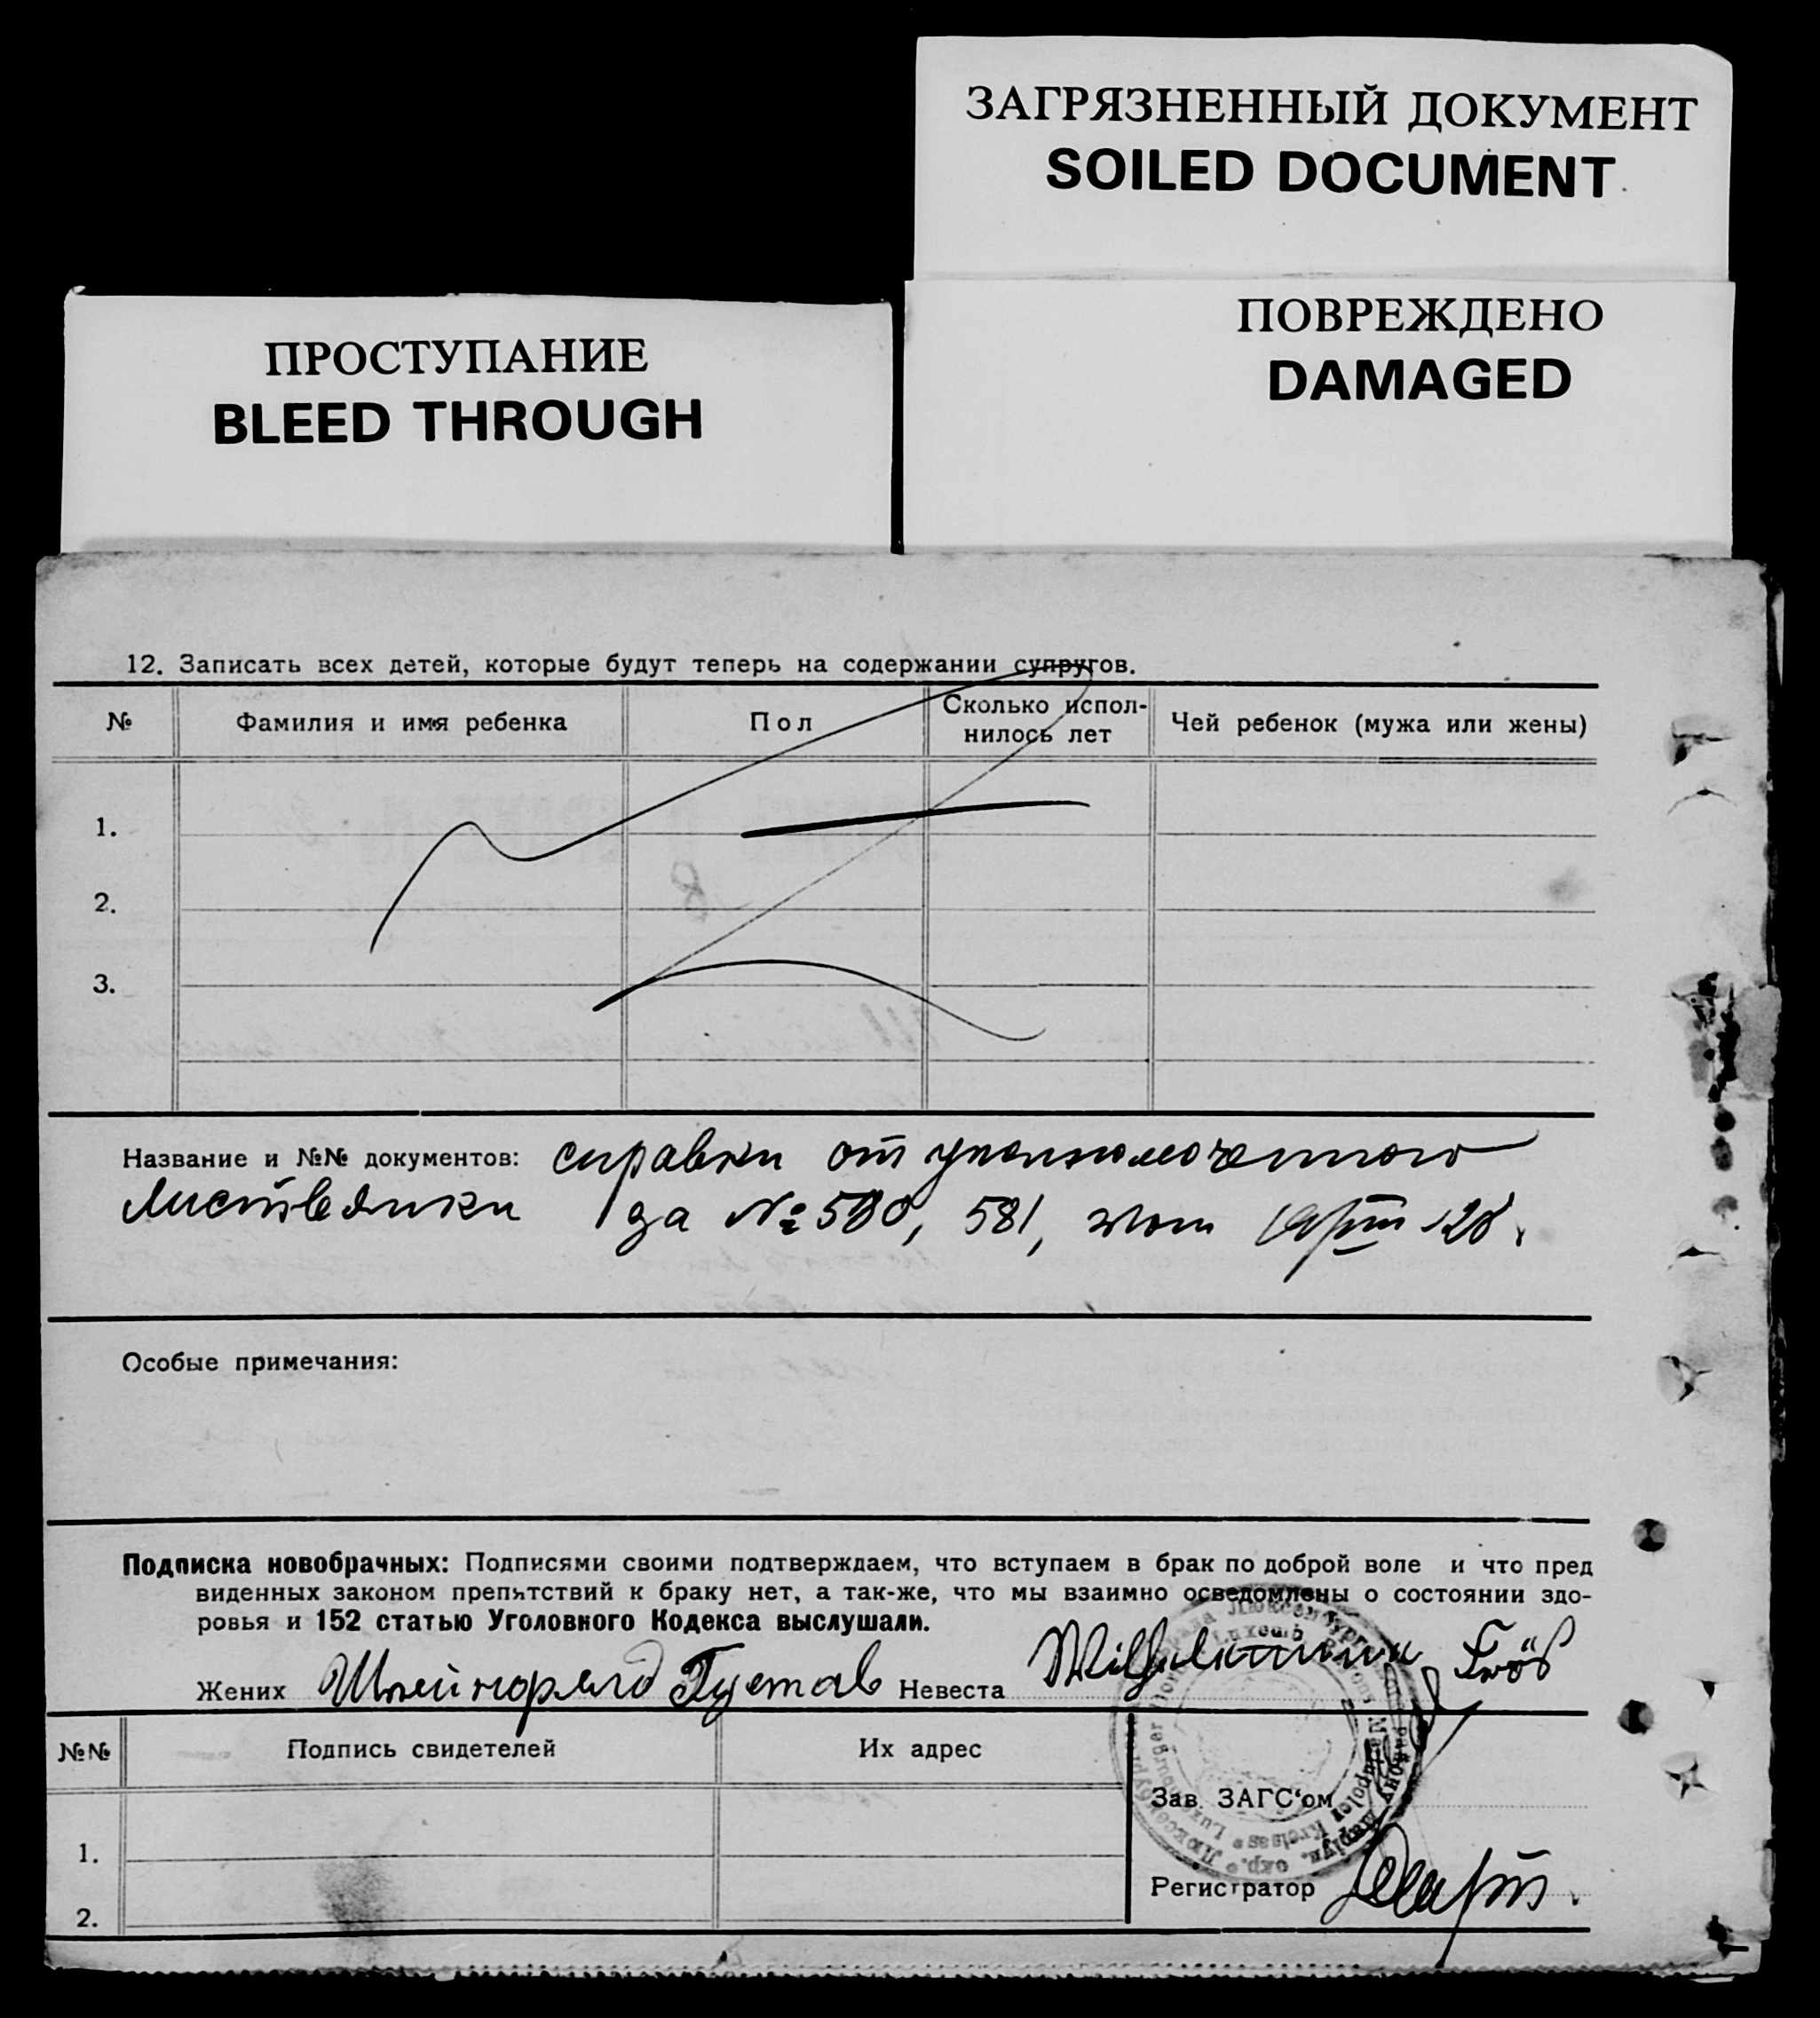 ЗАГРЯЗНЕННЫЙ ДОКУМЕНТ
SOILED DOCUMENT
ПОВРЕЖДЕНО
DAMAGED
ПРОСТУПАНИЕ
BLEED THROUGH
12. Записать всех детей, которые будут теперь на содержании супругов.
№ Фамилия и имя ребенка Пол Сколько испол-нилось лет Чей ребенок (мужа или жены)
1.
2.
3.
Название и №№ документов: справки от уполномоченного
за № 580, 581, 28.
Особые примечания:
Подписка новобрачных: Подписями своими подтверждаем, что вступаем в брак по доброй воле и что пред
виденных законом препятствий к браку нет, а так-же, что мы взаимно осведомлены о состоянии здо-
ровья и 152 статью Уголовного Кодекса выслушали.
Жених Густав Невеста
№№ Подпись свидетелей Их адрес
Зав. ЗАГС'ом
1.
Регистратор
2.